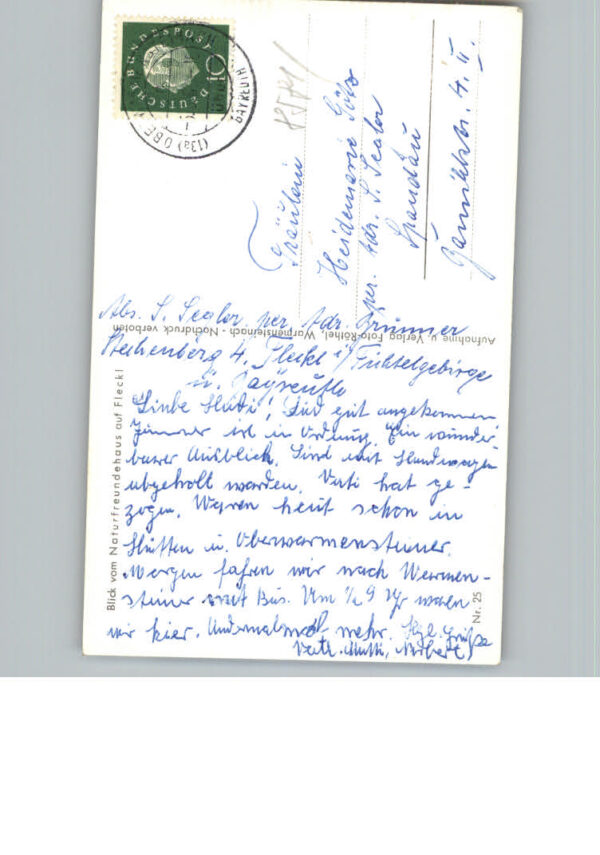 DEUTSCHE BUNDESPOST
10
(13a) OBE
BAYREUTH
Fräulein
Heidemarie Götz
per. Adr. S. Sealer
Spandau
4. II.
Abs. S. Sealer per. Adr. Brunner
4, Fleckl i/Fichtelgebirge
ü. Bayreuth
Aufnahme u. Verlag Foto-Röthel, Warmensteinach - Nachdruck verboten
Blick vom Naturfreundehaus auf Fleckl
Nr. 25
Liebe Heidi! Sind gut angekommen
Zimmer ist in Ordnung. Ein wunder
barer Ausblick. Sind mit Handwagen
abgeholt worden. Vati hat ge-
zogen. Waren heut schon in
Hütten u. Oberwarmensteiner.
Morgen fahren wir nach Warmen-
steiner mit Bus. Um ½ 9 Uhr waren
wir hier. Andermal mehr. Hzl. Grüße
Vati. Mutti, Norbert